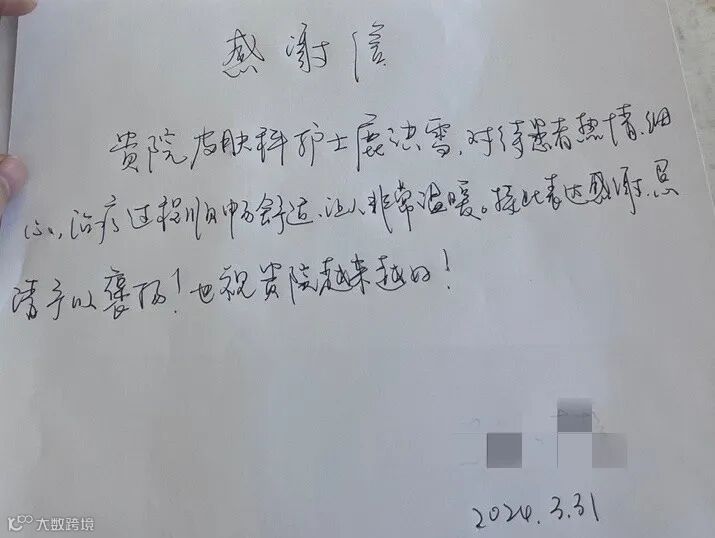 感谢信
贵院皮肤科护士鹿洪雪,对待患者热情、细
心,治疗过程顺畅舒适,让人非常温暖。接此表达感谢,恳
请予以褒扬!也祝贵院越来越好!
2024.3.31
大数跨境